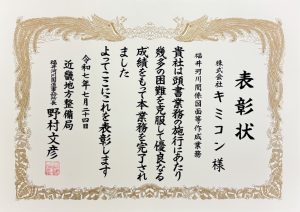 表彰状
株式会社キミコン様
福井河川関係図面等作成業務
貴社は頭書業務の施行にあたり
幾多の困難を克服して優良なる
成績をもって本業務を完了され
ました
よってここにこれを表彰します
令和七年七月二十四日
近畿地方整備局
福井河川国道事務所長
野村文彦